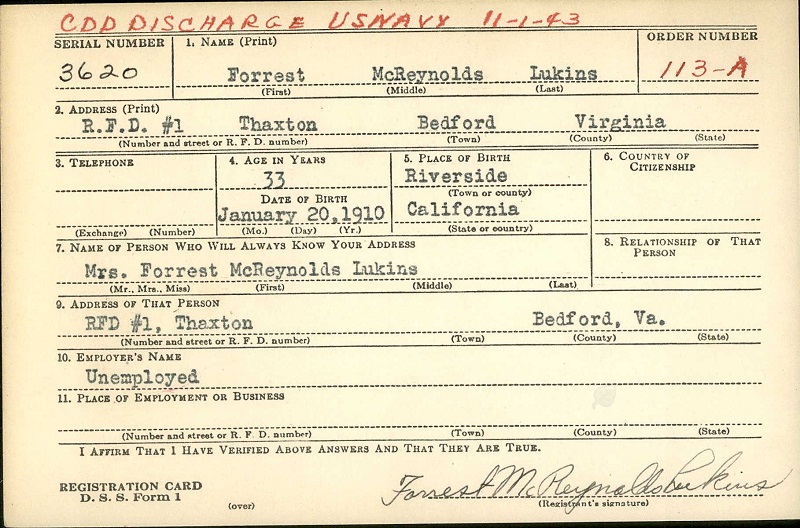 CDD DISCHARGE USNAVY 11-1-43
SERIAL NUMBER 1. NAME (Print) ORDER NUMBER
3620 Forrest McReynolds Lukins 113-A
(First) (Middle) (Last)
2. ADDRESS (Print)
R.F.D. #1 Thaxton Bedford Virginia
(Number and street or R. F. D. number) (Town) (County) (State)
3. TELEPHONE 4. AGE IN YEARS 5. PLACE OF BIRTH 6. COUNTRY OF CITIZENSHIP
33 Riverside
(Town or county)
DATE OF BIRTH
January 20,1910 California
(Exchange) (Number) (Mo.) (Day) (Yr.) (State or country)
7. NAME OF PERSON WHO WILL ALWAYS KNOW YOUR ADDRESS 8. RELATIONSHIP OF THAT PERSON
Mrs. Forrest McReynolds Lukins
(Mr., Mrs., Miss) (First) (Middle) (Last)
9. ADDRESS OF THAT PERSON
RFD #1, Thaxton Bedford, Va.
(Number and street or R. F. D. number) (Town) (County) (State)
10. EMPLOYER'S NAME
Unemployed
11. PLACE OF EMPLOYMENT OR BUSINESS
(Number and street or R. F. D. number) (Town) (County) (State)
I AFFIRM THAT I HAVE VERIFIED ABOVE ANSWERS AND THAT THEY ARE TRUE.
REGISTRATION CARD
D. S. S. Form 1 (over) Forrest McReynolds Lukins
(Registrant's signature)